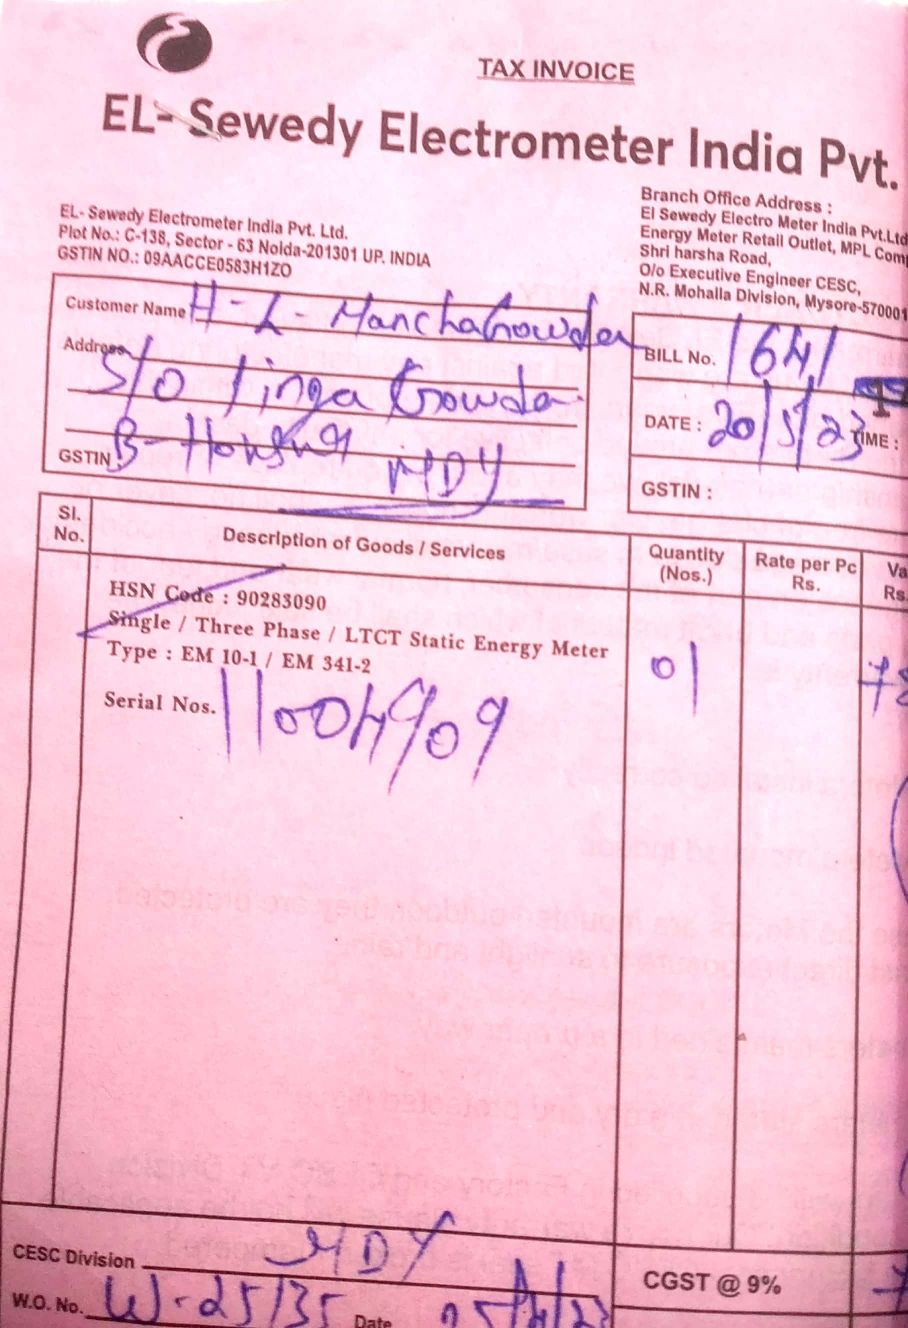 TAX INVOICE
EL- Sewedy Electrometer India Pvt.
EL- Sewedy Electrometer India Pvt. Ltd.
Plot No.: C-138, Sector - 63 Noida-201301 UP. INDIA
GSTIN NO.: 09AACCE0583H1ZO
Branch Office Address :
El Sewedy Electro Meter India Pvt.Ltd
Energy Meter Retail Outlet, MPL Comp
Shri harsha Road,
O/o Executive Engineer CESC,
N.R. Mohalla Division, Mysore-570001
Customer Name H-L-ManchaGowda
Address S/O Linga Gowda.
GSTIN B-Hosur
MDY
BILL No. 1641
DATE : 20/5/23 TIME :
GSTIN :
Sl. No. Description of Goods / Services Quantity (Nos.) Rate per Pc Rs. Va Rs.
HSN Code : 90283090
Single / Three Phase / LTCT Static Energy Meter
Type : EM 10-1 / EM 341-2
01
Serial Nos. 11004909
CESC Division MDY
CGST @ 9%
W.O. No. W-25/35 Date